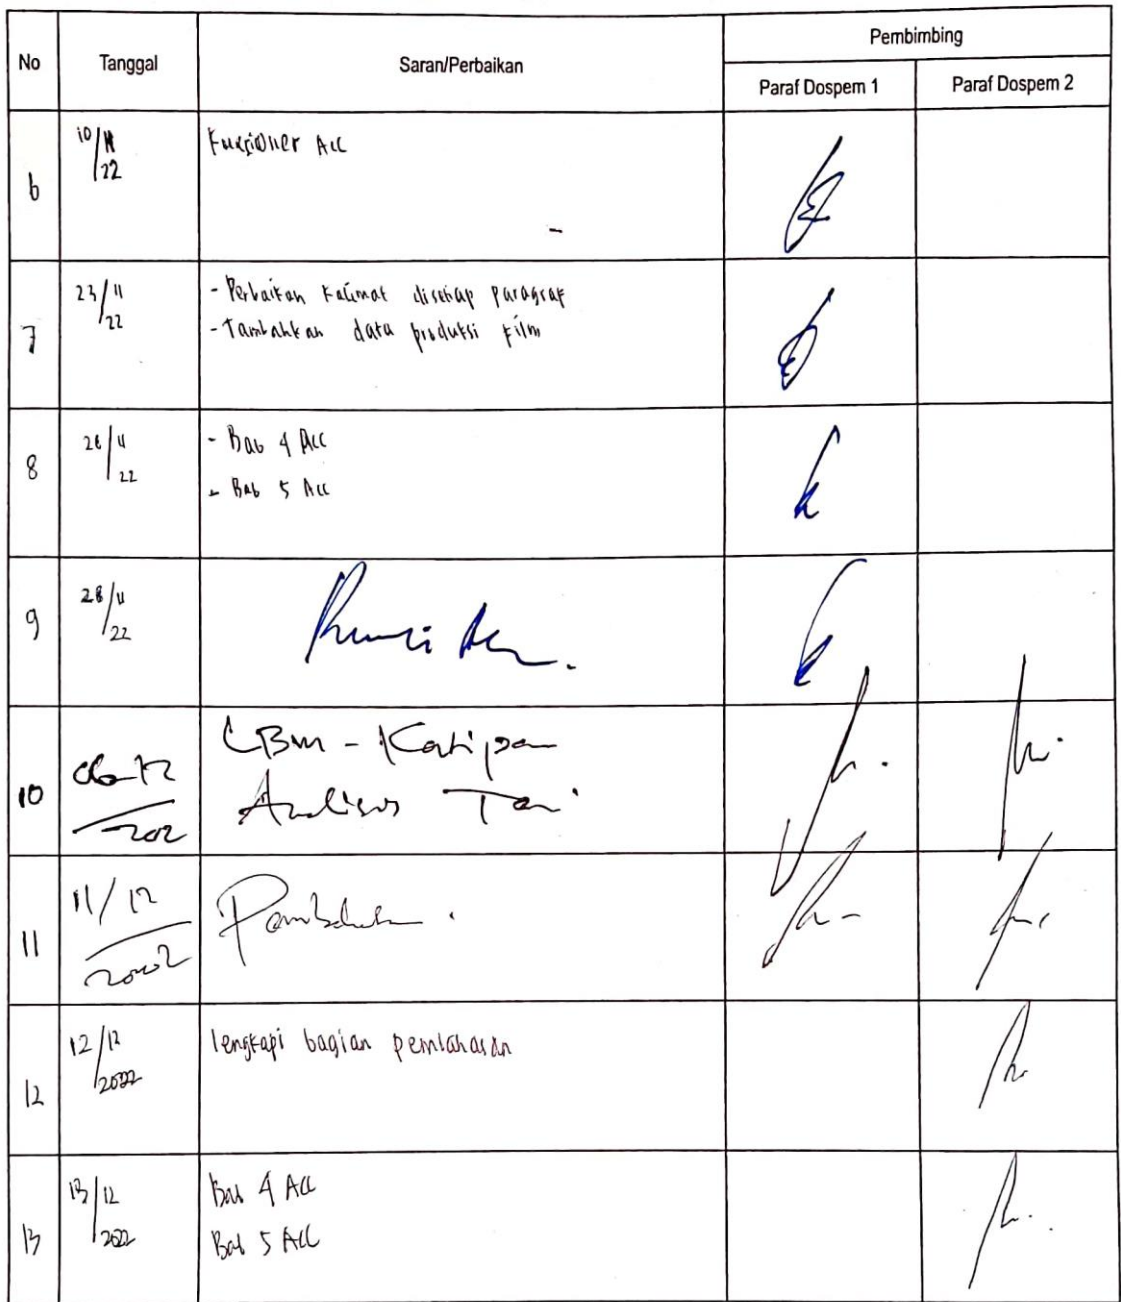 No Tanggal Saran/Perbaikan Pembimbing
Paraf Dospem 1 Paraf Dospem 2
6 10/11/22 Kuesioner Acc
7 23/11/22 - Perbaikan kalimat disetiap paragraf
- Tambahkan data produksi film
8 /11/22 - Bab 4 Acc
- Bab 5 Acc
9 28/11/22
10
Analisis
11 11/12/2022
12 12/12/2022 lengkapi bagian pembahasan
13 13/12/2022 Bab 4 Acc
Bab 5 Acc